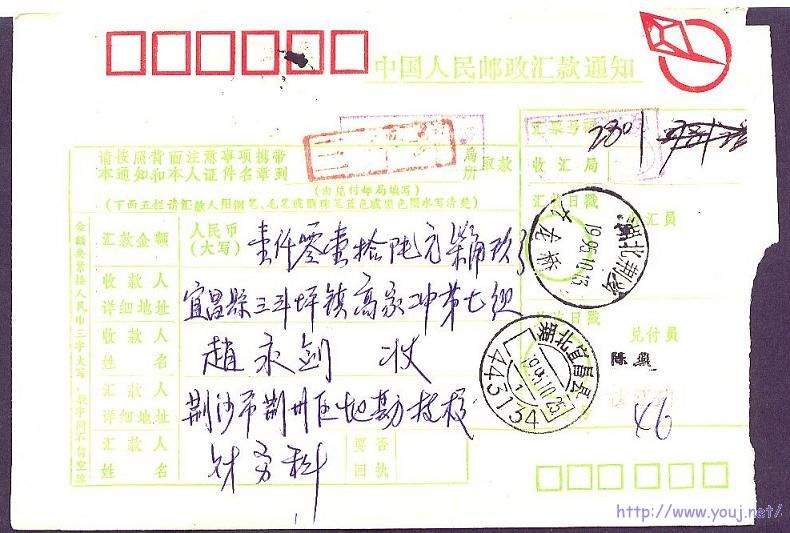 中国人民邮政汇款通知
汇票号码
2801
请按照背面注意事项携带
本通知和本人证件名章到
局
所
取款
收汇局
(由兑付邮局填写)
(下面五栏请汇款人用钢笔、毛笔或圆珠笔蓝色或黑色墨水写清楚)
收汇日戳
收汇员
金额要紧接人民币三字大写,数字间不留空隙
汇款金额
人民币
(大写)
壹仟零壹拾陆元柒角玖分
湖北荆沙
1995.10.13
九龙桥
收款人
详细地址
宜昌縣三斗坪镇高家冲第七组
日戳
兑付员
收款人
姓名
趙永剑 收
湖北宜昌县
1995.10.23
443134
陈
汇款人
详细地址
荆沙市荆州区地勘技校
46
汇款人
姓名
财务科
要否
回执
http://www.youj.net/